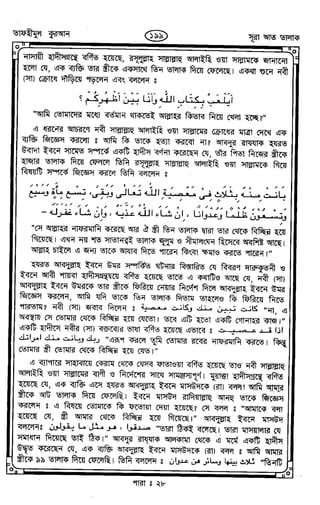 তাফহীমুল কুরআন
১৯৯
সূরা আত তালাক
নাসায়ী হাদীসগ্রন্থে বর্ণিত হয়েছে, রসূলুল্লাহ সাল্লাল্লাহু আলাইহি ওয়া সাল্লামকে জানানো
হলো যে, এক ব্যক্তি তার স্ত্রীকে একসাথে তিন তালাক দিয়ে ফেলেছে। একথা শুনে নবী
(সা) ক্রোধে দাঁড়িয়ে পড়লেন এবং বললেন :
أيلعب بكتاب الله وأنا بين أظهركم ؟
"আমি তোমাদের মধ্যে বর্তমান থাকতেই আল্লাহর কিতাব নিয়ে খেলা হচ্ছে?"
এ ধরনের আচরণে নবী সাল্লাল্লাহু আলাইহি ওয়া সাল্লামের ক্রোধের মাত্রা দেখে এক
ব্যক্তি জিজ্ঞেস করলো : আমি কি তাকে হত্যা করবো না? আবদুর রাযযাক হযরত
উবাদা ইবনে সামেত সম্পর্কে একটি হাদীস বর্ণনা করেছেন যে, তাঁর পিতা নিজের স্ত্রীকে
হাজার তালাক দিয়ে ফেললে তিনি রসূলুল্লাহ সাল্লাল্লাহু আলাইহি ওয়া সাল্লামকে গিয়ে
বিষয়টি সম্পর্কে জিজ্ঞেস করলে তিনি বললেন :
بانت منه بثلاث في معصية الله تعالى وبقي تسع مأة وسبع
وتسعون ظلما وعدوانا ، إن شاء الله عذبه ، وإن شاء غفرله -
"সে আল্লাহর নাফরমানি করছে আর ঐ স্ত্রী তিন তালাক দ্বারা তার থেকে বিচ্ছিন্ন হয়ে
গিয়েছে। এখন নয় শত সাতানব্বই তালাক জুলুম ও সীমালংঘন হিসেবে অবশিষ্ট আছে।
আল্লাহ চাইলে এ জন্য তাকে আযাব দিতে পারেন কিংবা ক্ষমাও করতে পারেন।"
হযরত আবদুল্লাহ ইবনে উমর সম্পর্কিত ঘটনার বিস্তারিত যে বিবরণ দারুকুতনী ও
ইবনে আবী শায়বা হাদীসগ্রন্থদ্বয়ে বর্ণিত হয়েছে তাতে এ কথাটিও আছে যে, নবী (সা)
আবদুল্লাহ ইবনে উমরকে তার স্ত্রীকে ফিরিয়ে নেয়ার নির্দেশ দিলে আবদুল্লাহ ইবনে উমর
জিজ্ঞেস করলেন, আমি যদি তাকে তিন তালাক দিতাম তাহলেও কি ফিরিয়ে নিতে
পারতাম? নবী (সা) জবাব দিলেন : كانت تبين منك وكانت معصية "না, এ
অবস্থায় সে তোমার থেকে বিচ্ছিন্ন হয়ে যেতো। তবে এটি হতো একটি গোনাহর কাজ।"
একটি হাদীসে নবীর (সা) বক্তব্যের ভাষা বর্ণিত হয়েছে এভাবে :
اذا قد عصيت ربك وبانت منك امراتك "এরূপ করলে তুমি তোমার রবের নাফরমানি করতে। কিন্তু
তোমার স্ত্রী তোমার থেকে বিচ্ছিন্ন হয়ে যেত।"
এ ব্যাপারে সাহাবায়ে কেরাম থেকে যেসব ফতোয়া বর্ণিত হয়েছে তাও নবী সাল্লাল্লাহু
আলাইহি ওয়া সাল্লামের বাণী ও নির্দেশের সাথে সামঞ্জস্যপূর্ণ। মুয়াত্তা হাদীসগ্রন্থে বর্ণিত
হয়েছে যে, এক ব্যক্তি এসে হযরত আবদুল্লাহ ইবনে মাসউদকে (রা) বলল। আমি আমার
স্ত্রীকে আট তালাক দিয়ে ফেলেছি। ইবনে মাসউদ রাদিয়াল্লাহু আনহু তাকে জিজ্ঞেস
করলেন : এ বিষয়ে তোমাকে কি ফতোয়া দেয়া হয়েছে? সে বলল : "আমাকে বলা
হয়েছে যে, স্ত্রী আমার থেকে বিচ্ছিন্ন হয়ে গিয়েছে।" আবদুল্লাহ ইবনে মাসউদ
বললেন : صدقوا ، هو مثل ما يقولون "তারা ঠিকই বলেছে। তারা মাসয়ালার যে
সমাধান দিয়েছে তাই ঠিক।" আবদুর রাযযাক আলকামা থেকে এ মর্মে একটি হাদীস
উদ্ধৃত করেছেন যে, এক ব্যক্তি আবদুল্লাহ ইবনে মাসউদকে (রা) বলল : আমি আমার
স্ত্রীকে ৯৯ তালাক দিয়ে ফেলেছি। তিনি বললেন : ثلاث بينها وسائر هن عدوان "তিনটি
পারা : ২৮